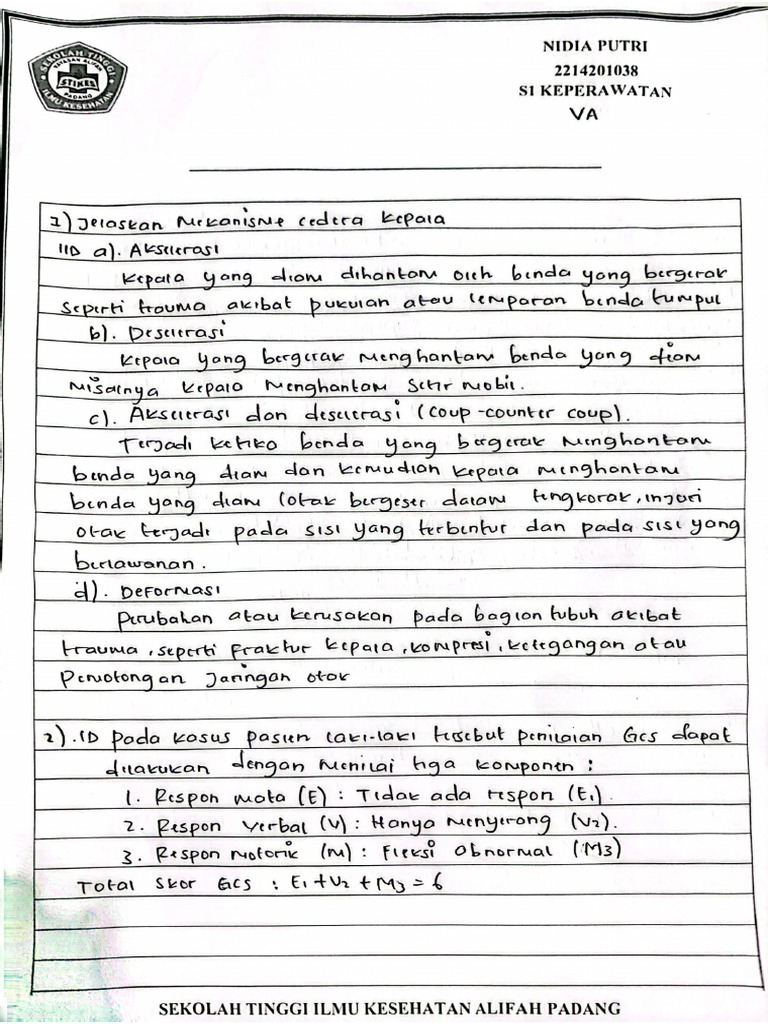 SEKOLAH TINGGI
YAYASAN ALIFAH
STIKES
PADANG
ILMU KESEHATAN
NIDIA PUTRI
2214201038
S1 KEPERAWATAN
VA
1) Jelaskan Mekanisme cedera kepala
JJD a). Akselerasi
Kepala yang diam dihantam oleh benda yang bergerak
seperti trauma akibat pukulan atau lemparan benda tumpul
b). Deselerasi
Kepala yang bergerak Menghantam benda yang diam
misalnya kepala Menghantam setir mobil.
c). Akselerasi dan deselerasi (coup-counter coup).
Terjadi ketika benda yang bergerak Menghantam
benda yang diam dan kemudian kepala menghantam
benda yang diam (otak bergeser dalam tengkorak, injuri
otak terjadi pada sisi yang terbentur dan pada sisi yang
berlawanan.
d). Deformasi
Perubahan atau kerusakan pada bagian tubuh akibat
trauma, seperti fraktur kepala, kompresi, ketegangan atau
Pemotongan Jaringan otak
2). JD pada kasus pasien laki-laki tersebut penilaian GCS dapat
dilakukan dengan Menilai tiga komponen :
1. Respon mata (E) : Tidak ada respon (E1).
2. Respon Verbal (V) : Hanya Mengerang (V2).
3. Respon Motorik (M) : Fleksi Abnormal (M3)
Total Skor GCS : E1 + V2 + M3 = 6
SEKOLAH TINGGI ILMU KESEHATAN ALIFAH PADANG